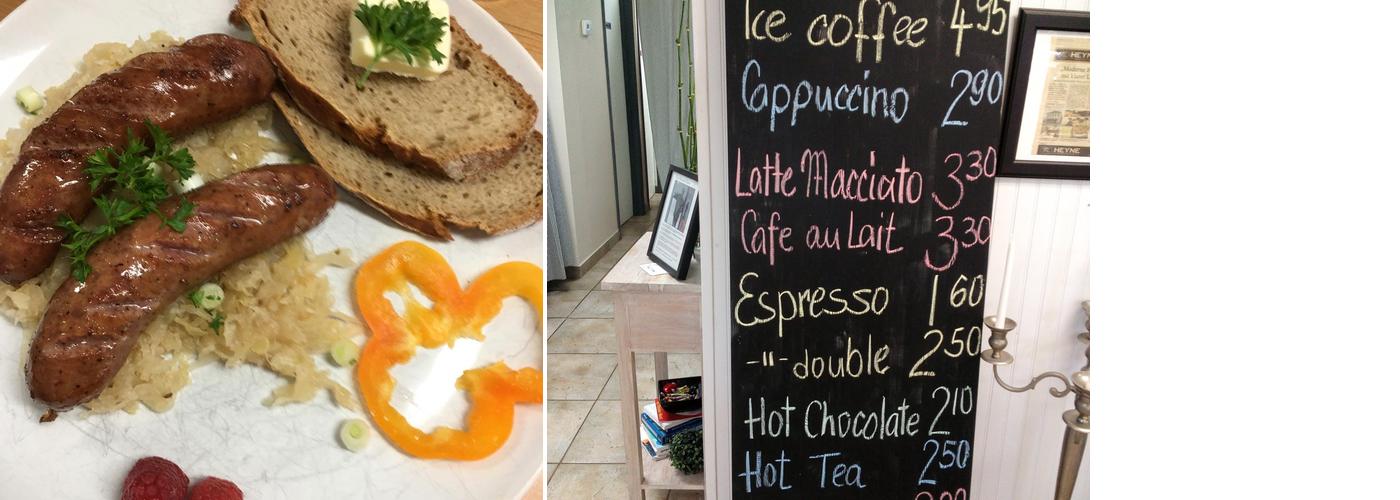 Ice coffee 4 95
Cappuccino 2 90
Latte Macciato 3 30
Cafe au Lait 3 30
Espresso 1 60
-"- double 2 50
Hot Chocolate 2 10
Hot Tea 2 50
HEYNE
HEYNE